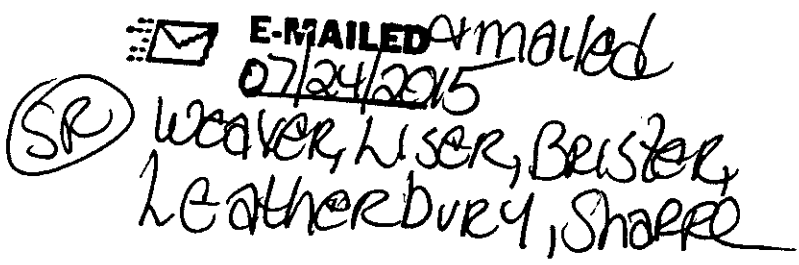 E-MAILED & mailed
07/24/2015
SR Weaver, Liser, Brister,
Leatherbury, Sharpe